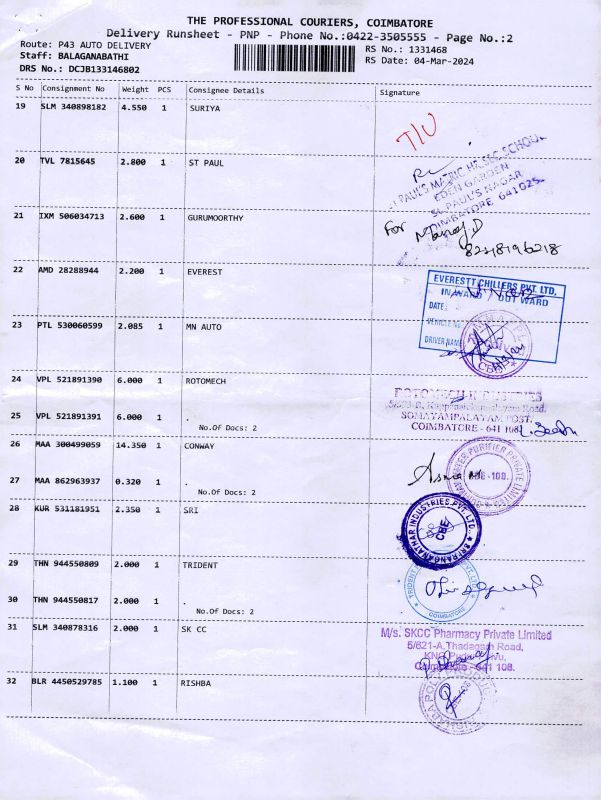 THE PROFESSIONAL COURIERS, COIMBATORE
Delivery Runsheet - PNP - Phone No.:0422-3505555 - Page No.:2
Route: P43 AUTO DELIVERY RS No.: 1331468
Staff: BALAGANABATHI RS Date: 04-Mar-2024
DRS No.: DCJB133146802
S No Consignment No Weight PCS Consignee Details Signature
19 SLM 340898182 4.550 1 SURIYA
20 TVL 7815645 2.800 1 ST PAUL
ST PAUL'S MATRIC HR.SEC SCHOOL
EDEN GARDEN
ST. PAUL'S NAGAR
COIMBATORE 641025.
21 IXM 506034713 2.600 1 GURUMOORTHY
For
22 AMD 28288944 2.200 1 EVEREST
EVERESTT CHILLERS PVT. LTD.
IN WARD / OUT WARD
DATE:
VEHICLE No
DRIVER NAME
23 PTL 530060599 2.085 1 MN AUTO
24 VPL 521891390 6.000 1 ROTOMECH
ROTOMECH INDUSTRIES
Road.
SOMAYAMPALAYAM POST.
COIMBATORE - 641 108.
25 VPL 521891391 6.000 1
No.Of Docs: 2
26 MAA 300499059 14.350 1 CONWAY
WATER PURIFIER PRIVATE LIMITED
27 MAA 862963937 0.320 1 .
No.Of Docs: 2
28 KUR 531181951 2.350 1 SRI
SRI RANGANATHAR INDUSTRIES PVT. LTD.
CBE
29 THN 944550809 2.000 1 TRIDENT
TRIDENT
COIMBATORE
30 THN 944550817 2.000 1 .
No.Of Docs: 2
31 SLM 340878316 2.000 1 SK CC
M/s. SKCC Pharmacy Private Limited
5/621-A, Thadagam Road,
Coimbatore - 641 108.
32 BLR 4450529785 1.100 1 RISHBA